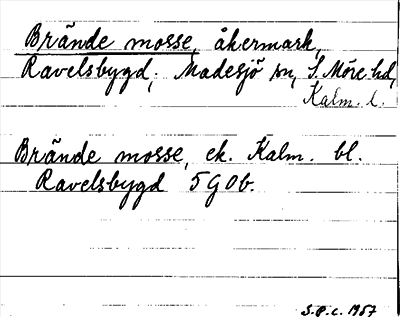 Brände mosse, åkermark,
Ravelsbygd, Madesjö sn, S. Möre hd,
Kalm. l.
Brände mosse, ek. Kalm. bl.
Ravelsbygd 5G0b.
S.P.C. 1957